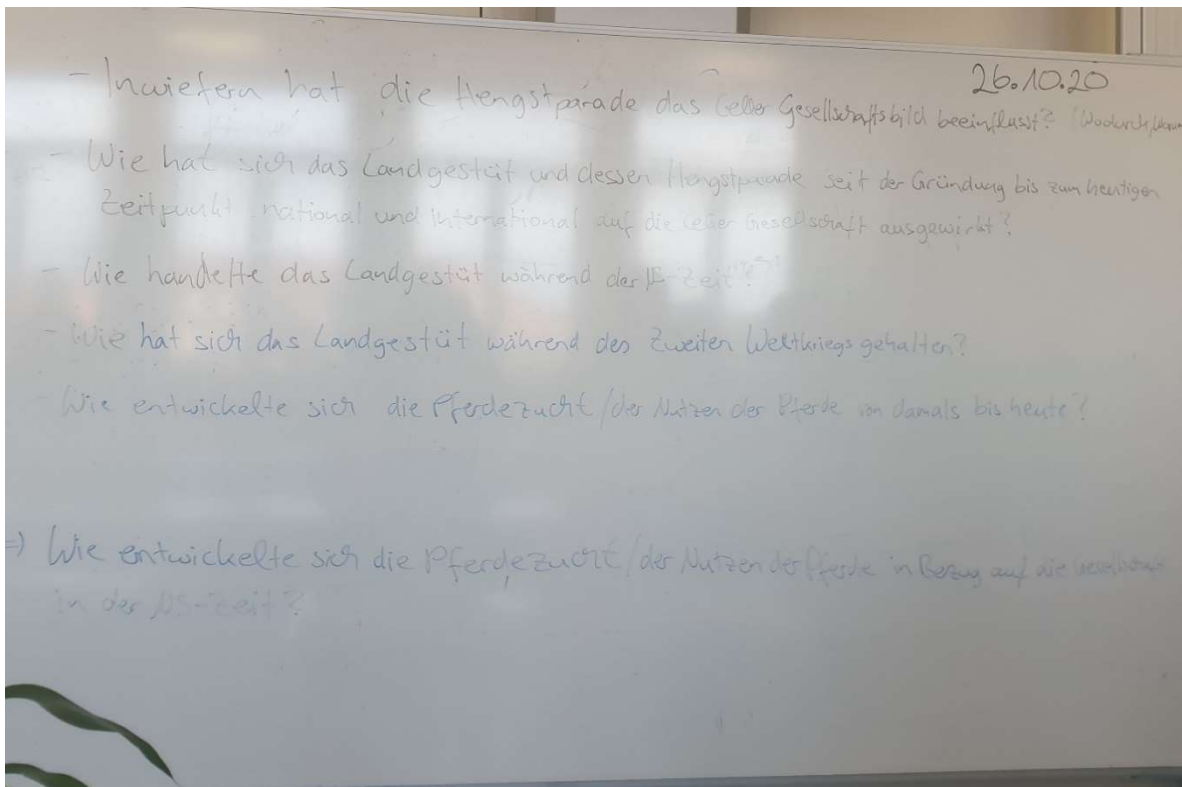 26.10.20
- Inwiefern hat die Hengstparade das Celler Gesellschaftsbild beeinflusst? (Wodurch,
- Wie hat sich das Landgestüt und dessen Hengstparade seit der Gründung bis zum heutigen
Zeitpunkt national und International auf die Celler Gesellschaft ausgewirkt?
- Wie handelte das Landgestüt während der NS-Zeit?
- Wie hat sich das Landgestüt während des Zweiten Weltkriegs gehalten?
- Wie entwickelte sich die Pferdezucht/der Nutzen der Pferde von damals bis heute?
=) Wie entwickelte sich die Pferdezucht/der Nutzen der Pferde in Bezug auf die Gesellschaft
in der NS-Zeit?